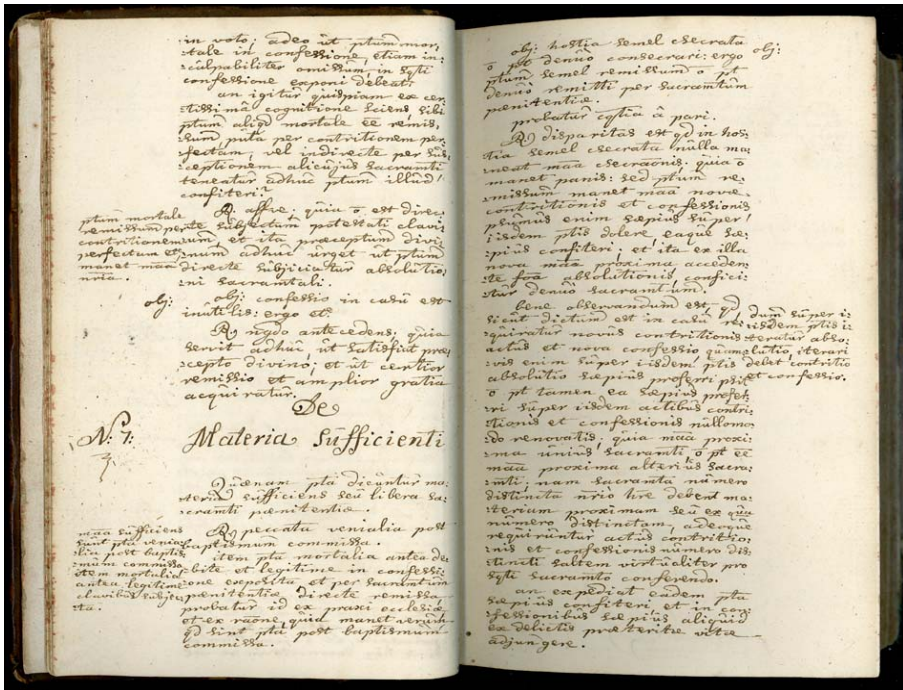 in voto; adeo ut ptum mor,
tale in confessione, etiam in,
culpabiliter omissum, in sqti
confessione exponi debeat:
an igitur quispiam ex cer,
tissimâ cognitione sciens, sibi
ptum aliqd mortale ee remis,
sum, puta per contritionem per,
fectam, vel indirecte per sus,
ceptionem alicujus sacramti
teneatur adhuc ptum illud
confiteri?
ptum mortale
remissum per
contritionem
perfectam et
manet maa
nria.
R. affve: quia o est direc,
te subjectum potestati clavi,
um, et ita præceptum divi,
num adhuc urget ut ptum
directe subjiciatur absolutio,
ni sacramtali.
obj: obj: confessio in casu est
inutilis: ergo et.
R. ngdo antecedens; quia
servit adhuc, ut satisfiat præ,
cepto divino; et ut certior
remissio et amplior gratia
acquiratur.
De
N: 7: Materia sufficienti
Quænam pta dicuntur ma,
teria sufficiens seu libera sa,
cramti pænitentiæ.
maa sufficiens
sunt pta venia,
lia post baptis,
mum commissa
item mortalia
antea legitime
clavibus subjec,
ta.
R. peccata venialia post
baptismum commissa.
item pta mortalia antea de,
bite et legitime in confessi,
one exposita et per sacramtum
pænitentiæ directe remissa
probatur id ex praxi ecclesiæ
et ex raone, quia manet verum
qd sint pta post baptismum
commissa.
obj: hostia semel csecrata obj:
o pt denuo consecrari: ergo
ptum semel remissum o pt
denuo remitti per sacramtum
pænitentiæ.
probatur cqtia â pari.
R. disparitas est qd in hos,
tia semel csecrata nulla ma,
neat maa csecraonis; quia o
manet panis: sed ptum re,
missum manet maa novæ
contritionis et confessionis
possumus enim sæpius super
iisdem ptis dolere eaque sæ,
pius confiteri; et ita ex illa
nova maa proxima acceden,
te foa absolutionis confici,
tur denuo sacramtum.
bene observandum est, qd
sicut dictum est in casu re,
quiratur novus contritionis
actus et nova confessio quam,
vis enim super iisdem ptis
absolutio sæpius proferri psit
o pt tamen ea sæpius profer,
ri super iisdem actibus contri,
tionis et confessionis nullomo,
do renovatis; quia maa proxi,
ma unius sacramti o pt ee
maa proxima alterius sacra,
mti; nam sacramta numero
distincta nrio hre debent ma,
teriam proximam seu ex qua
numero distinctam, adeoque
requiruntur actus contritio,
nis et confessionis numero dis,
tincti saltem virtualiter pro
sqti sacramto conferendo.
dum super i,
isdem ptis i,
teratur abso,
lutio, iterari
debet contritio
et confessio.
an expediat eadem pta
sæpius confiteri, et in con,
fessionibus sæpius aliquid
ex delictis præteritæ vitæ
adjungere.